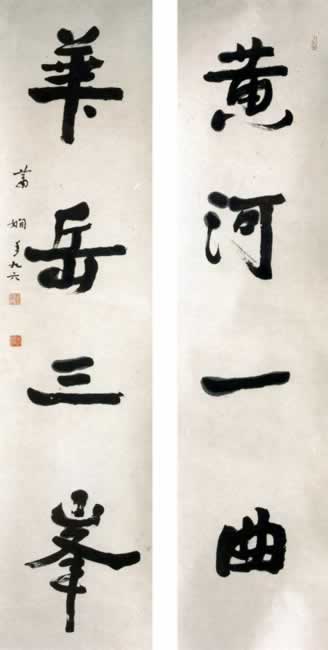 黄河一曲
華岳三峯
蕭嫻年九六